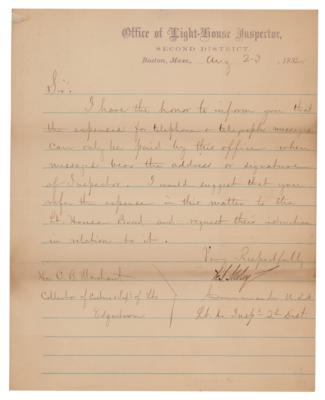 Office of Light-House Inspector,
SECOND DISTRICT.
Boston, Mass., Aug 23, 188
Sir:
I have the honor to inform you that
the expenses for telephone or telegraph messages
can only be paid by this office when
messages bear the address or signature
of Inspector. I would suggest that you
refer the expense in this matter to the
Lt House Board and request their
in relation to it.
Very Respectfully
Hon C. B. Marchant
Collector of Customs & Supt of Lts
Edgartown
Commander U.S.N.
Lt. Ho. Insp. 2d Dist